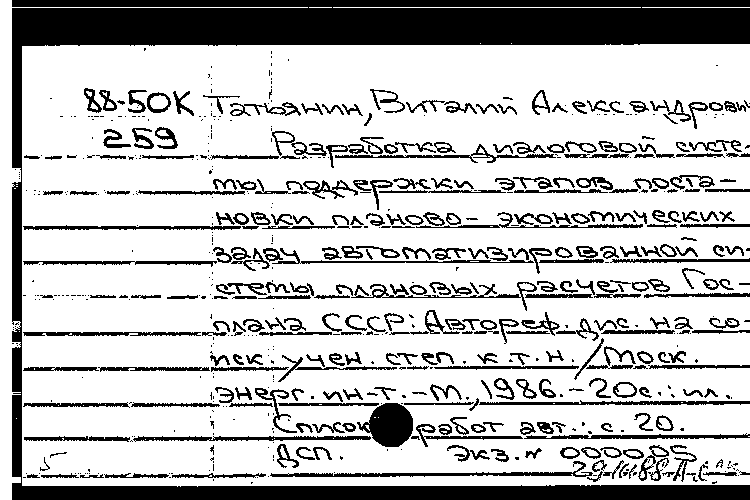 88-50К Татьянин, Виталий Александрович
259 Разработка диалоговой систе-
мы поддержки этапов поста-
новки планово-экономических
задач автоматизированной си-
стемы плановых расчетов Гос-
плана СССР: Автореф. дис. на со-
иск. учен. степ. к.т.н. / Моск.
энерг. ин-т. - М., 1986. - 20с.: ил.
Список работ авт.: с. 20.
ДСП. Экз. № 000005